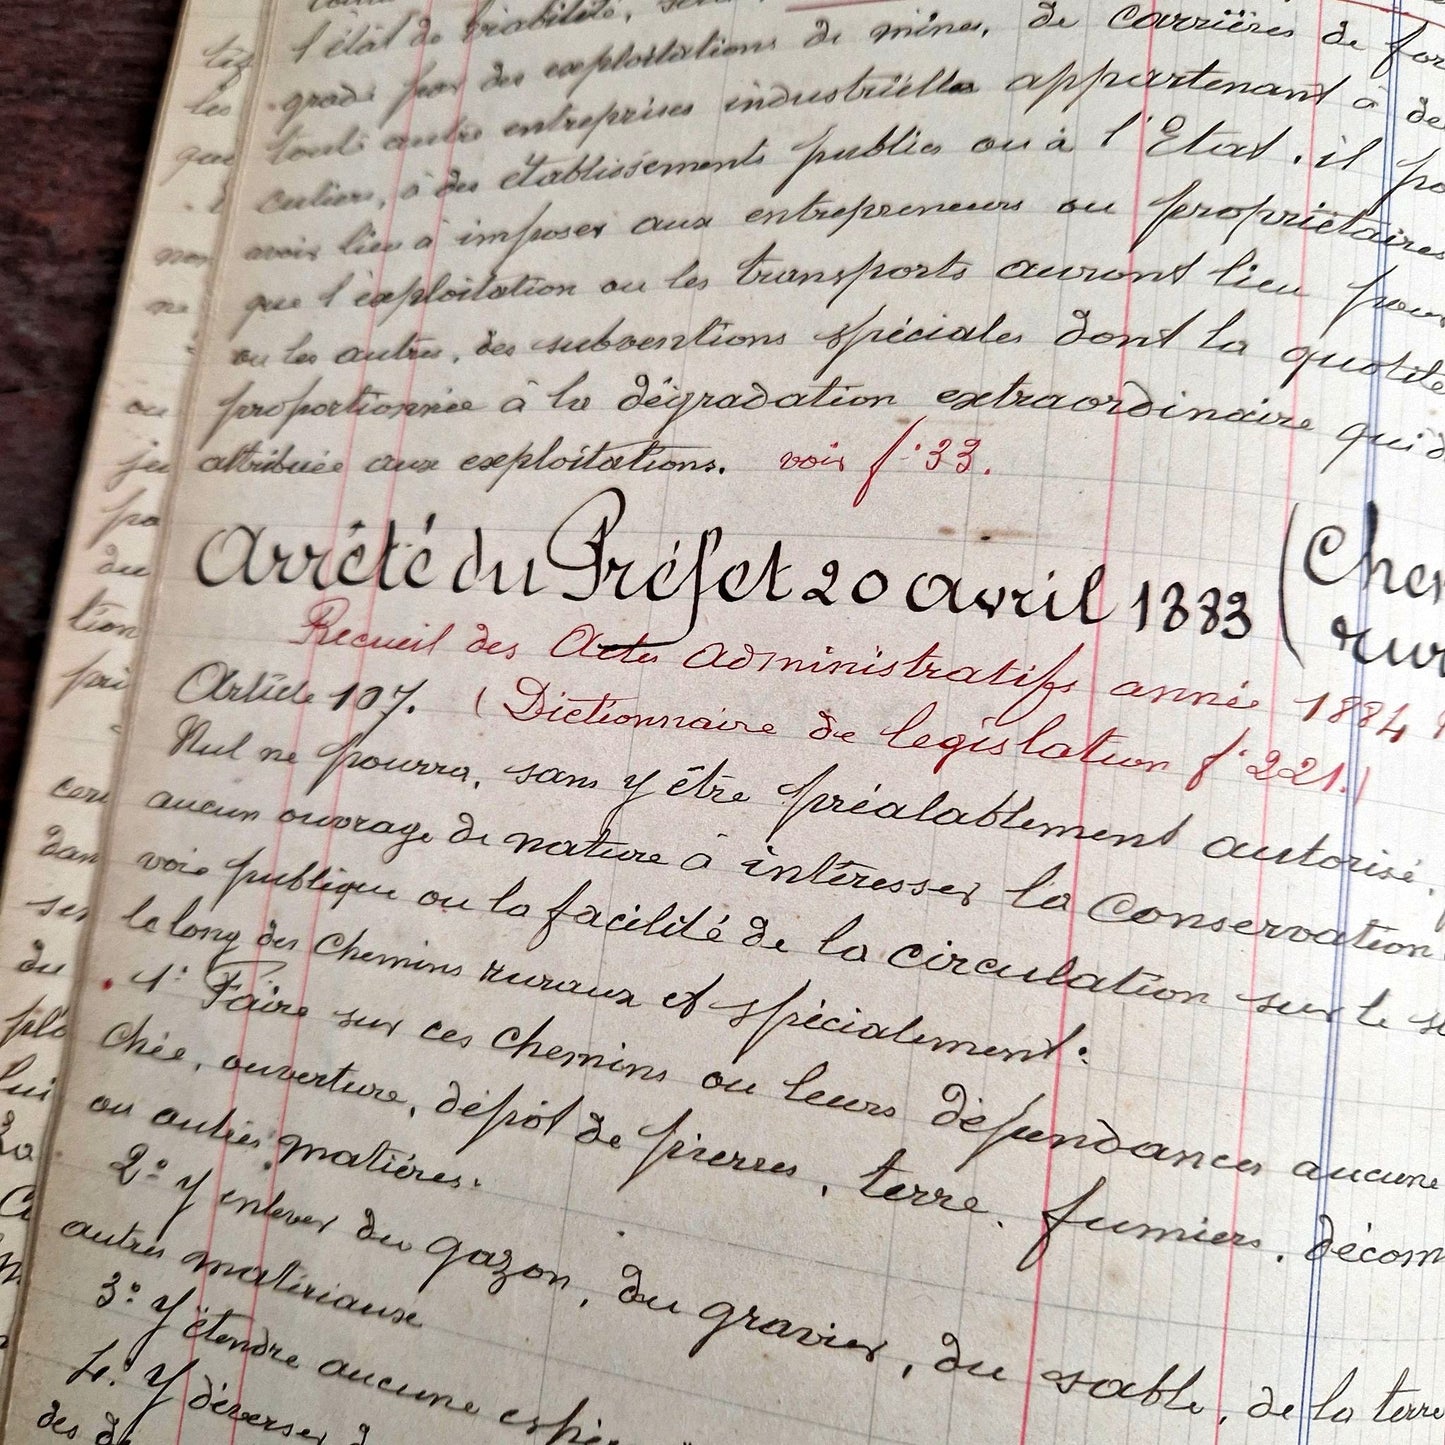 l'état de viabilité,
grade par des exploitations de mines, de carrières de for
toute autre entreprises industrielles appartenant à de
culiers, à des établissements publics ou à l'Etat, il po
avoir lieu à imposer aux entrepreneurs ou propriétaires
que l'exploitation ou les transports auront lieu pour
ou les autres, des subventions spéciales dont la quotité
proportionnée à la dégradation extraordinaire qui d
attribuée aux exploitations. voir f° 33.
Arrêté du Préfet 20 avril 1883 (Chem
rur
Recueil des Actes administratifs année 1884
Article 107. (Dictionnaire de législation f° 221.)
Nul ne pourra, sans y être préalablement autorisé,
aucun ouvrage de nature à intéresser la conservation
voie publique ou la facilité de la circulation sur le s
le long des chemins ruraux et spécialement:
1° Faire sur ces chemins ou leurs dépendances aucune
chée, ouverture, dépôt de pierres, terre, fumiers, décom
ou autres matières.
2° y enlever du gazon, du gravier, du sable, de la terre
autres matériaux
3° y étendre aucune espè
4° y déverser d
des de